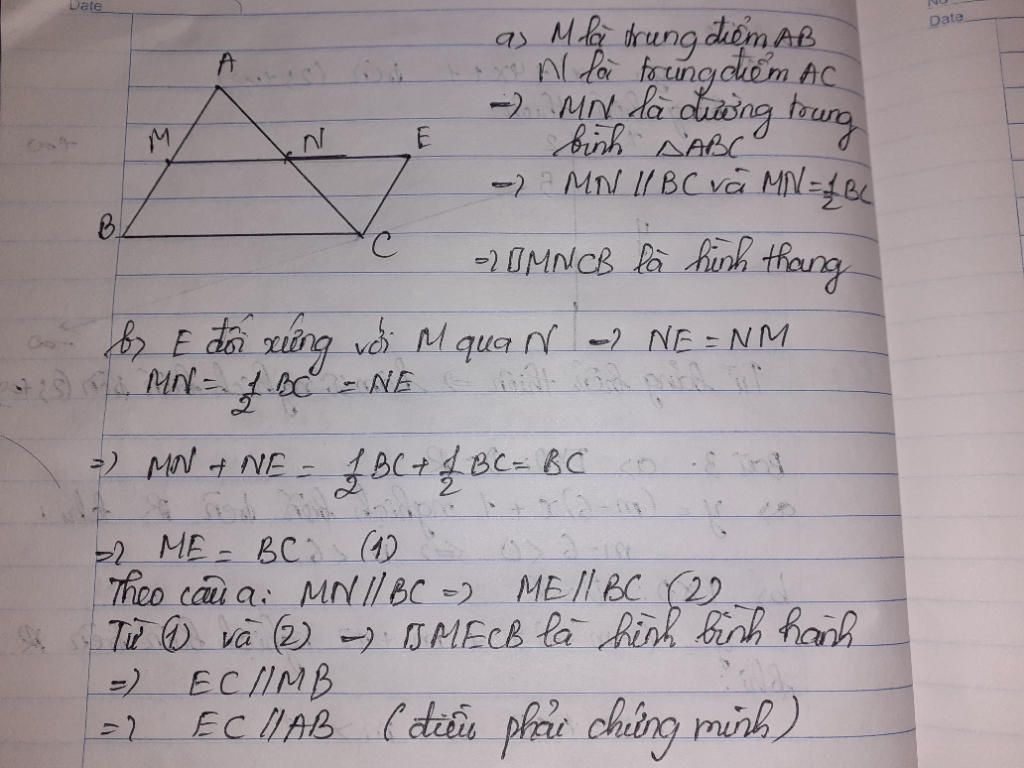 Date
No
Date
a) M là trung điểm AB
N là trung điểm AC
→ MN là đường trung
bình △ABC
→ MN // BC và MN = 1/2 BC
⇒ □MNCB là hình thang
A
M
N
E
B
C
b) E đối xứng với M qua N → NE = NM
MN = 1/2 BC = NE
⇒ MN + NE = 1/2 BC + 1/2 BC = BC
⇒ ME = BC (1)
Theo câu a: MN // BC ⇒ ME // BC (2)
Từ (1) và (2) → □MECB là hình bình hành
⇒ EC // MB
⇒ EC // AB (điều phải chứng minh)